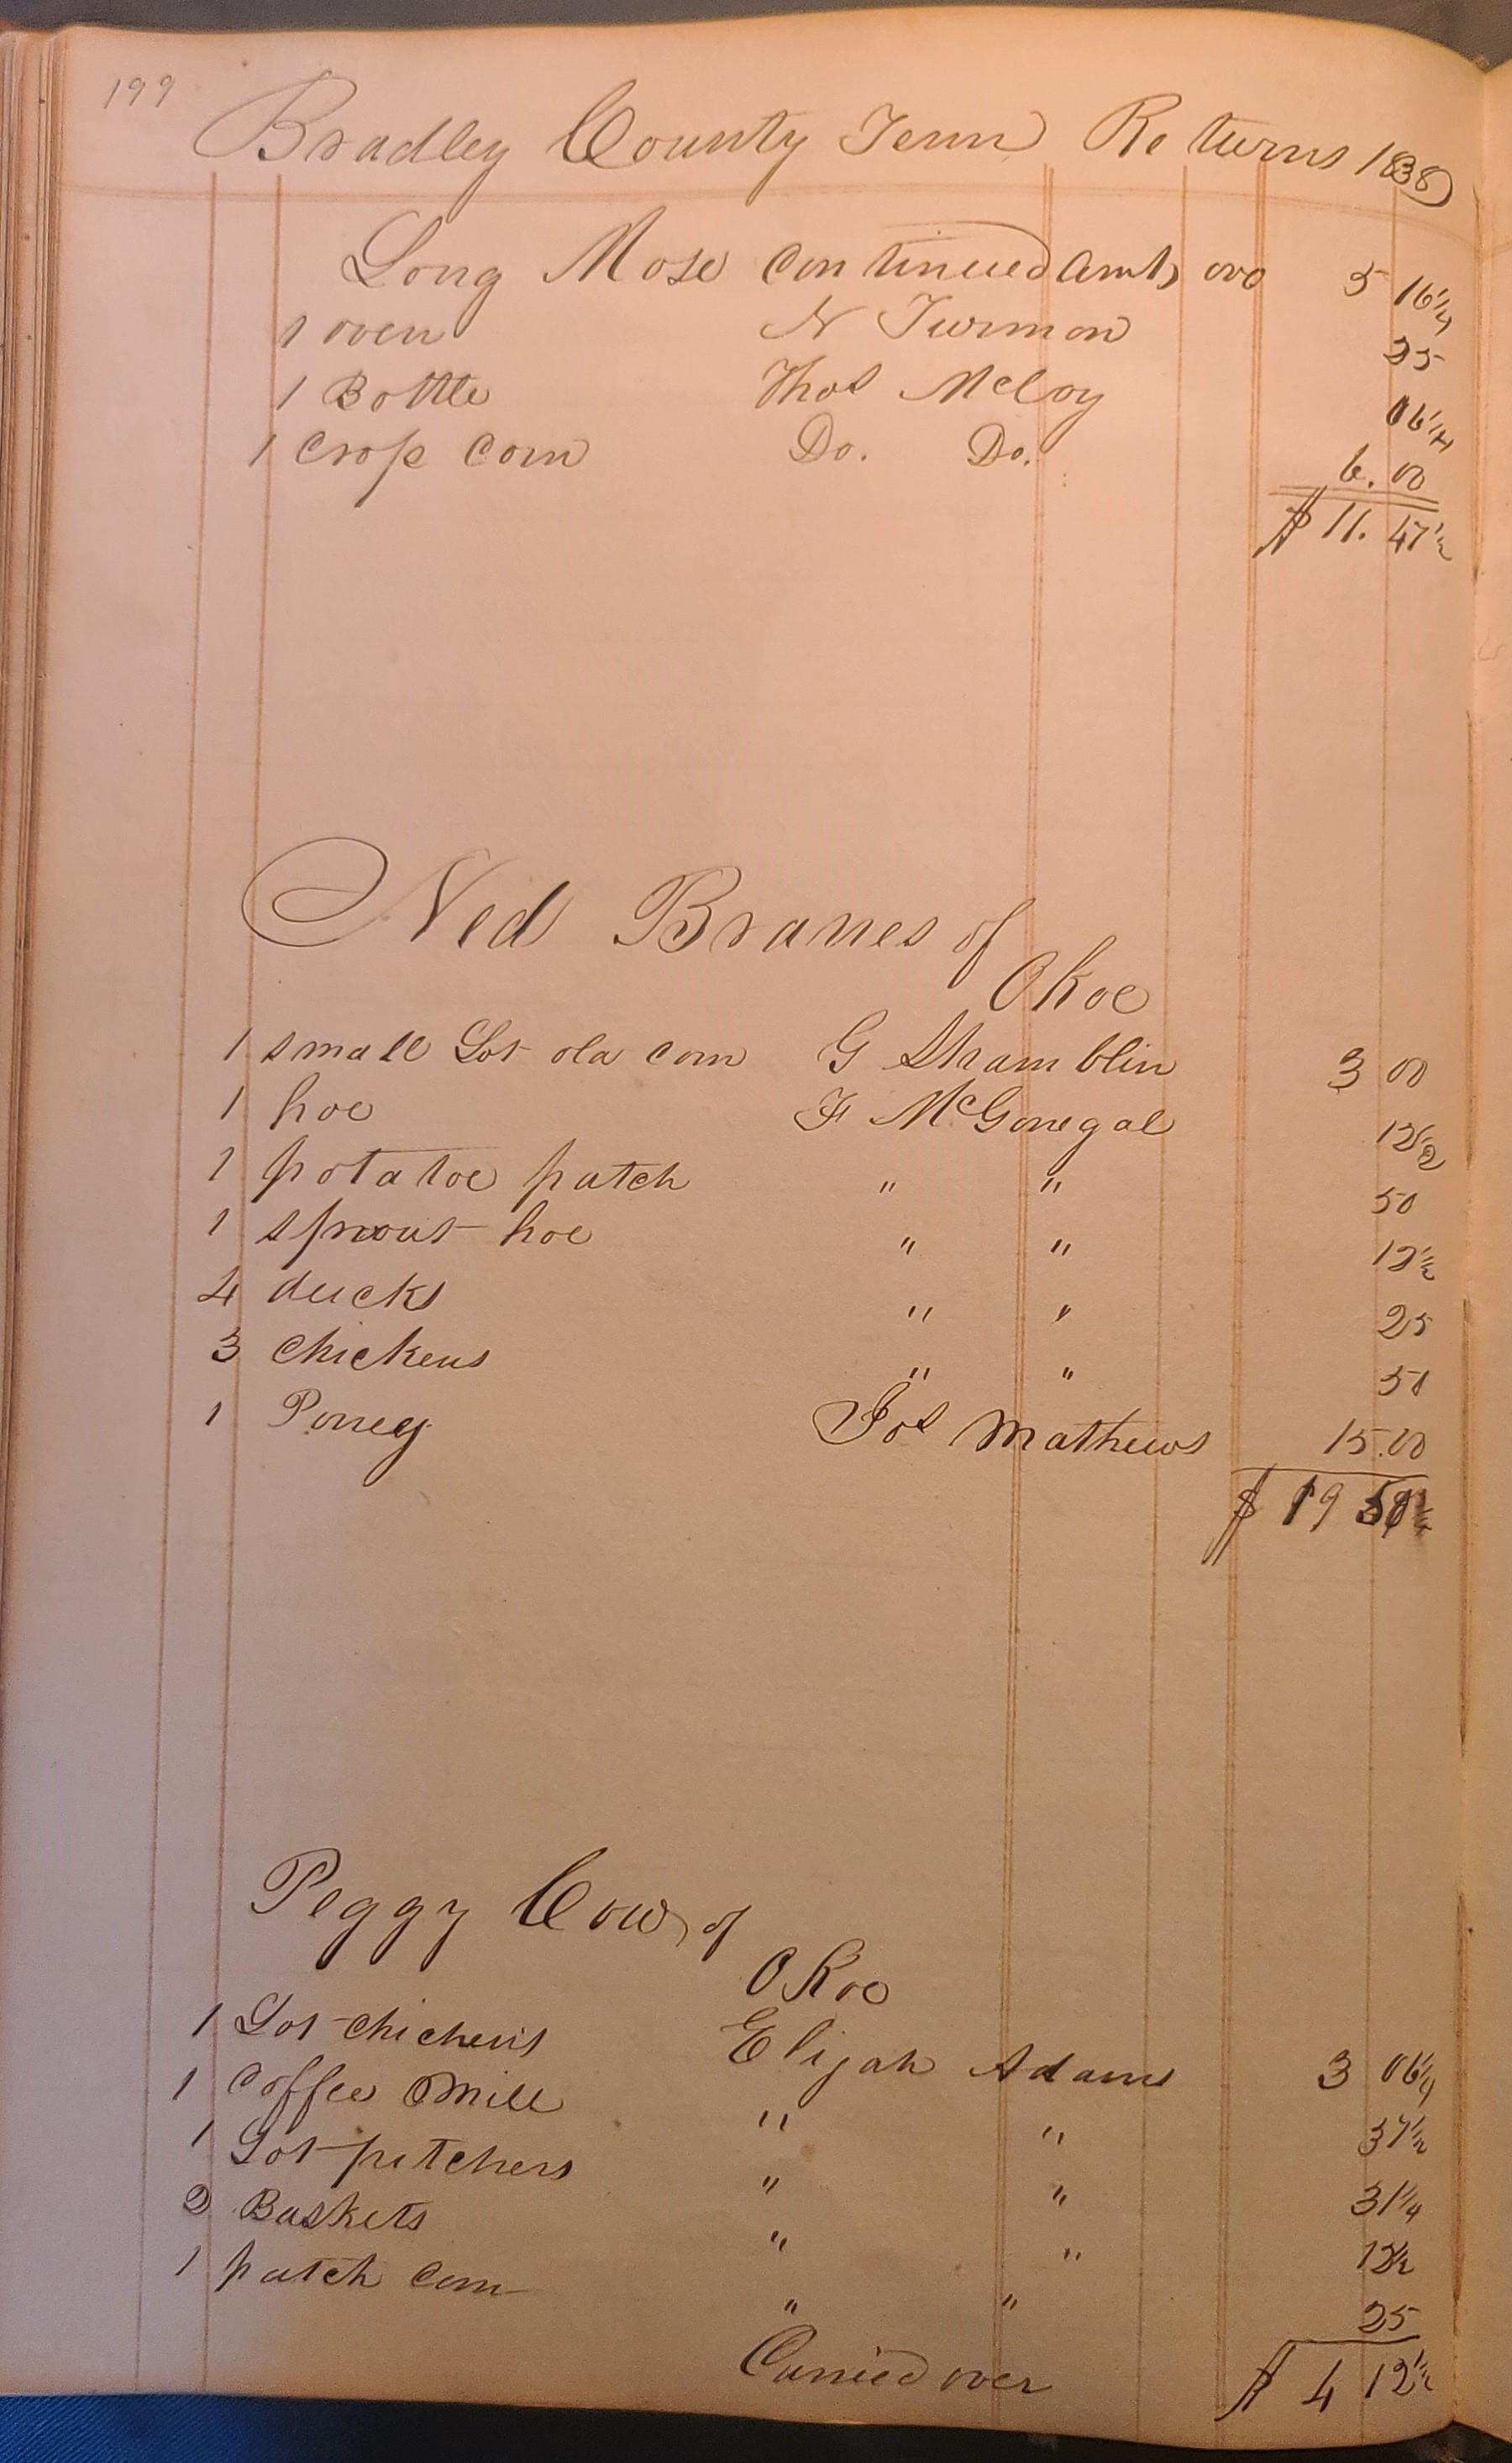 199
Bradley County Tenn Returns 1838
Long Mose Continued Amt, ovo 5 16 1/4
1 oven N Turmon 25
1 Bottle Thos McCoy 06 1/4
1 Crop Corn Do. Do. 6.00
$ 11. 47 1/2
Ned Branes of
Okoe
1 small Lot old corn G Shamblin 3 00
1 hoe F McGonegal 12 1/2
1 potatoe patch " " 50
1 sprout hoe " " 12 1/2
4 ducks " " 25
3 Chickens " " 50
1 Poney Jos Mathews 15.00
$ 19 50
Peggy Cow, of
Okoe
1 Lot Chickens Elijah Adams 3 06 1/4
1 Coffee Mill " " 37 1/2
1 Lot pitchers " " 31 1/4
2 Baskets " " 12 1/2
1 patch Corn " " 25
Carried over $ 4 12 1/2